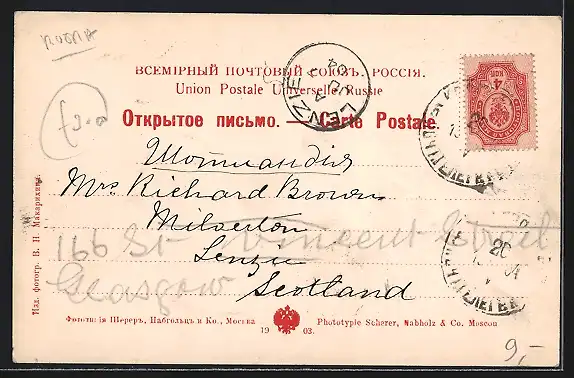 ВСЕМІРНЫЙ ПОЧТОВЫЙ СОЮЗЪ. РОССІЯ.
Union Postale Universelle. Russie
Открытое письмо. — Carte Postale.
Шотландія
Mrs Richard Brown
Milverton
166 St Vincent Street
Lenzie
Glasgow
Scotland
LENZIE
4 КОП
20
20
£3.0
Изд. фотогр. В. Н. Макарихина
Фототипія Шереръ, Набгольцъ и Ко., Москва
1903.
Phototypie Scherer, Nabholz & Co. Moscou
9,-